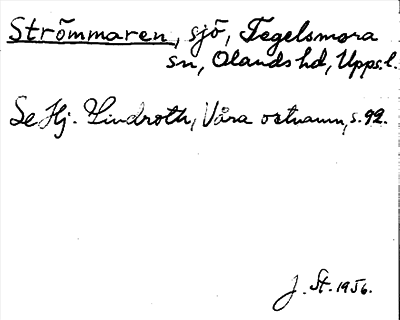 Strömmaren, sjö, Tegelsmora
sn, Olands hd, Upps. l.
Se Hj. Lindroth, Våra ortnamn, s. 92.
J. St. 1956.